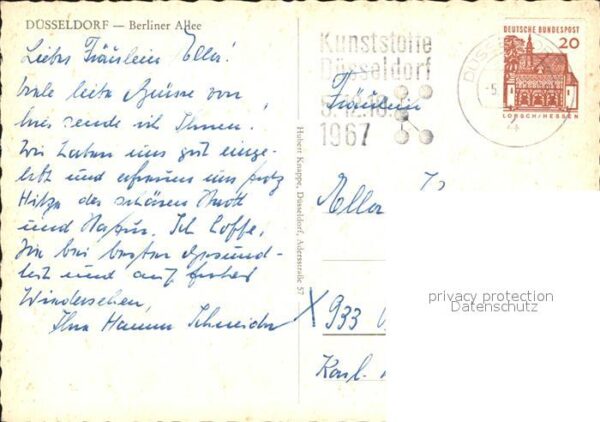 DÜSSELDORF — Berliner Allee
Liebes Fräulein Ella!
viele liebe Grüsse von
hier sende ich Ihnen!
Wir haben uns gut einge-
lebt und erfreuen uns trotz
Hitze der schönen Stadt
und Hafen. Ich hoffe,
Sie bei bester Gesund-
heit und auf frohes
Wiedersehen,
Ihre Schneider
Hubert Knappe, Düsseldorf, Adersstraße 57
Kunststoffe
Düsseldorf
1967
DÜSSELDORF
DEUTSCHE BUNDESPOST
20
LORSCH/HESSEN
Fräulein
Ella
933
Karl
privacy protection
Datenschutz